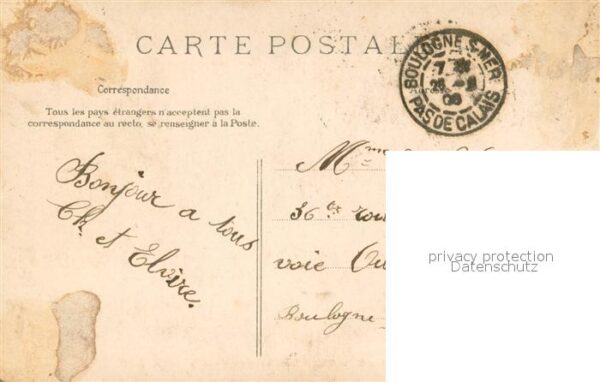 CARTE POSTAL
BOULOGNE S-MER
PAS DE CALAIS
Correspondance
Tous les pays étrangers n'acceptent pas la
correspondance au recto, se renseigner à la Poste.
Bonjour a tous
Ch. et Elvire.
Mme
36
voie
Boulogne
privacy protection
Datenschutz